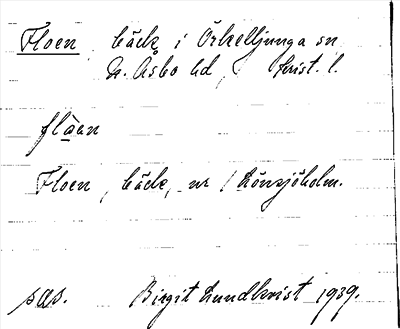 Floen, bäck i Örkelljunga sn
N. Åsbo hd, Krist. l.
flɑ̀en
Floen, bäck, nr 1 Lönsjöholm.
sɑs. Birgit Lundkvist 1939.